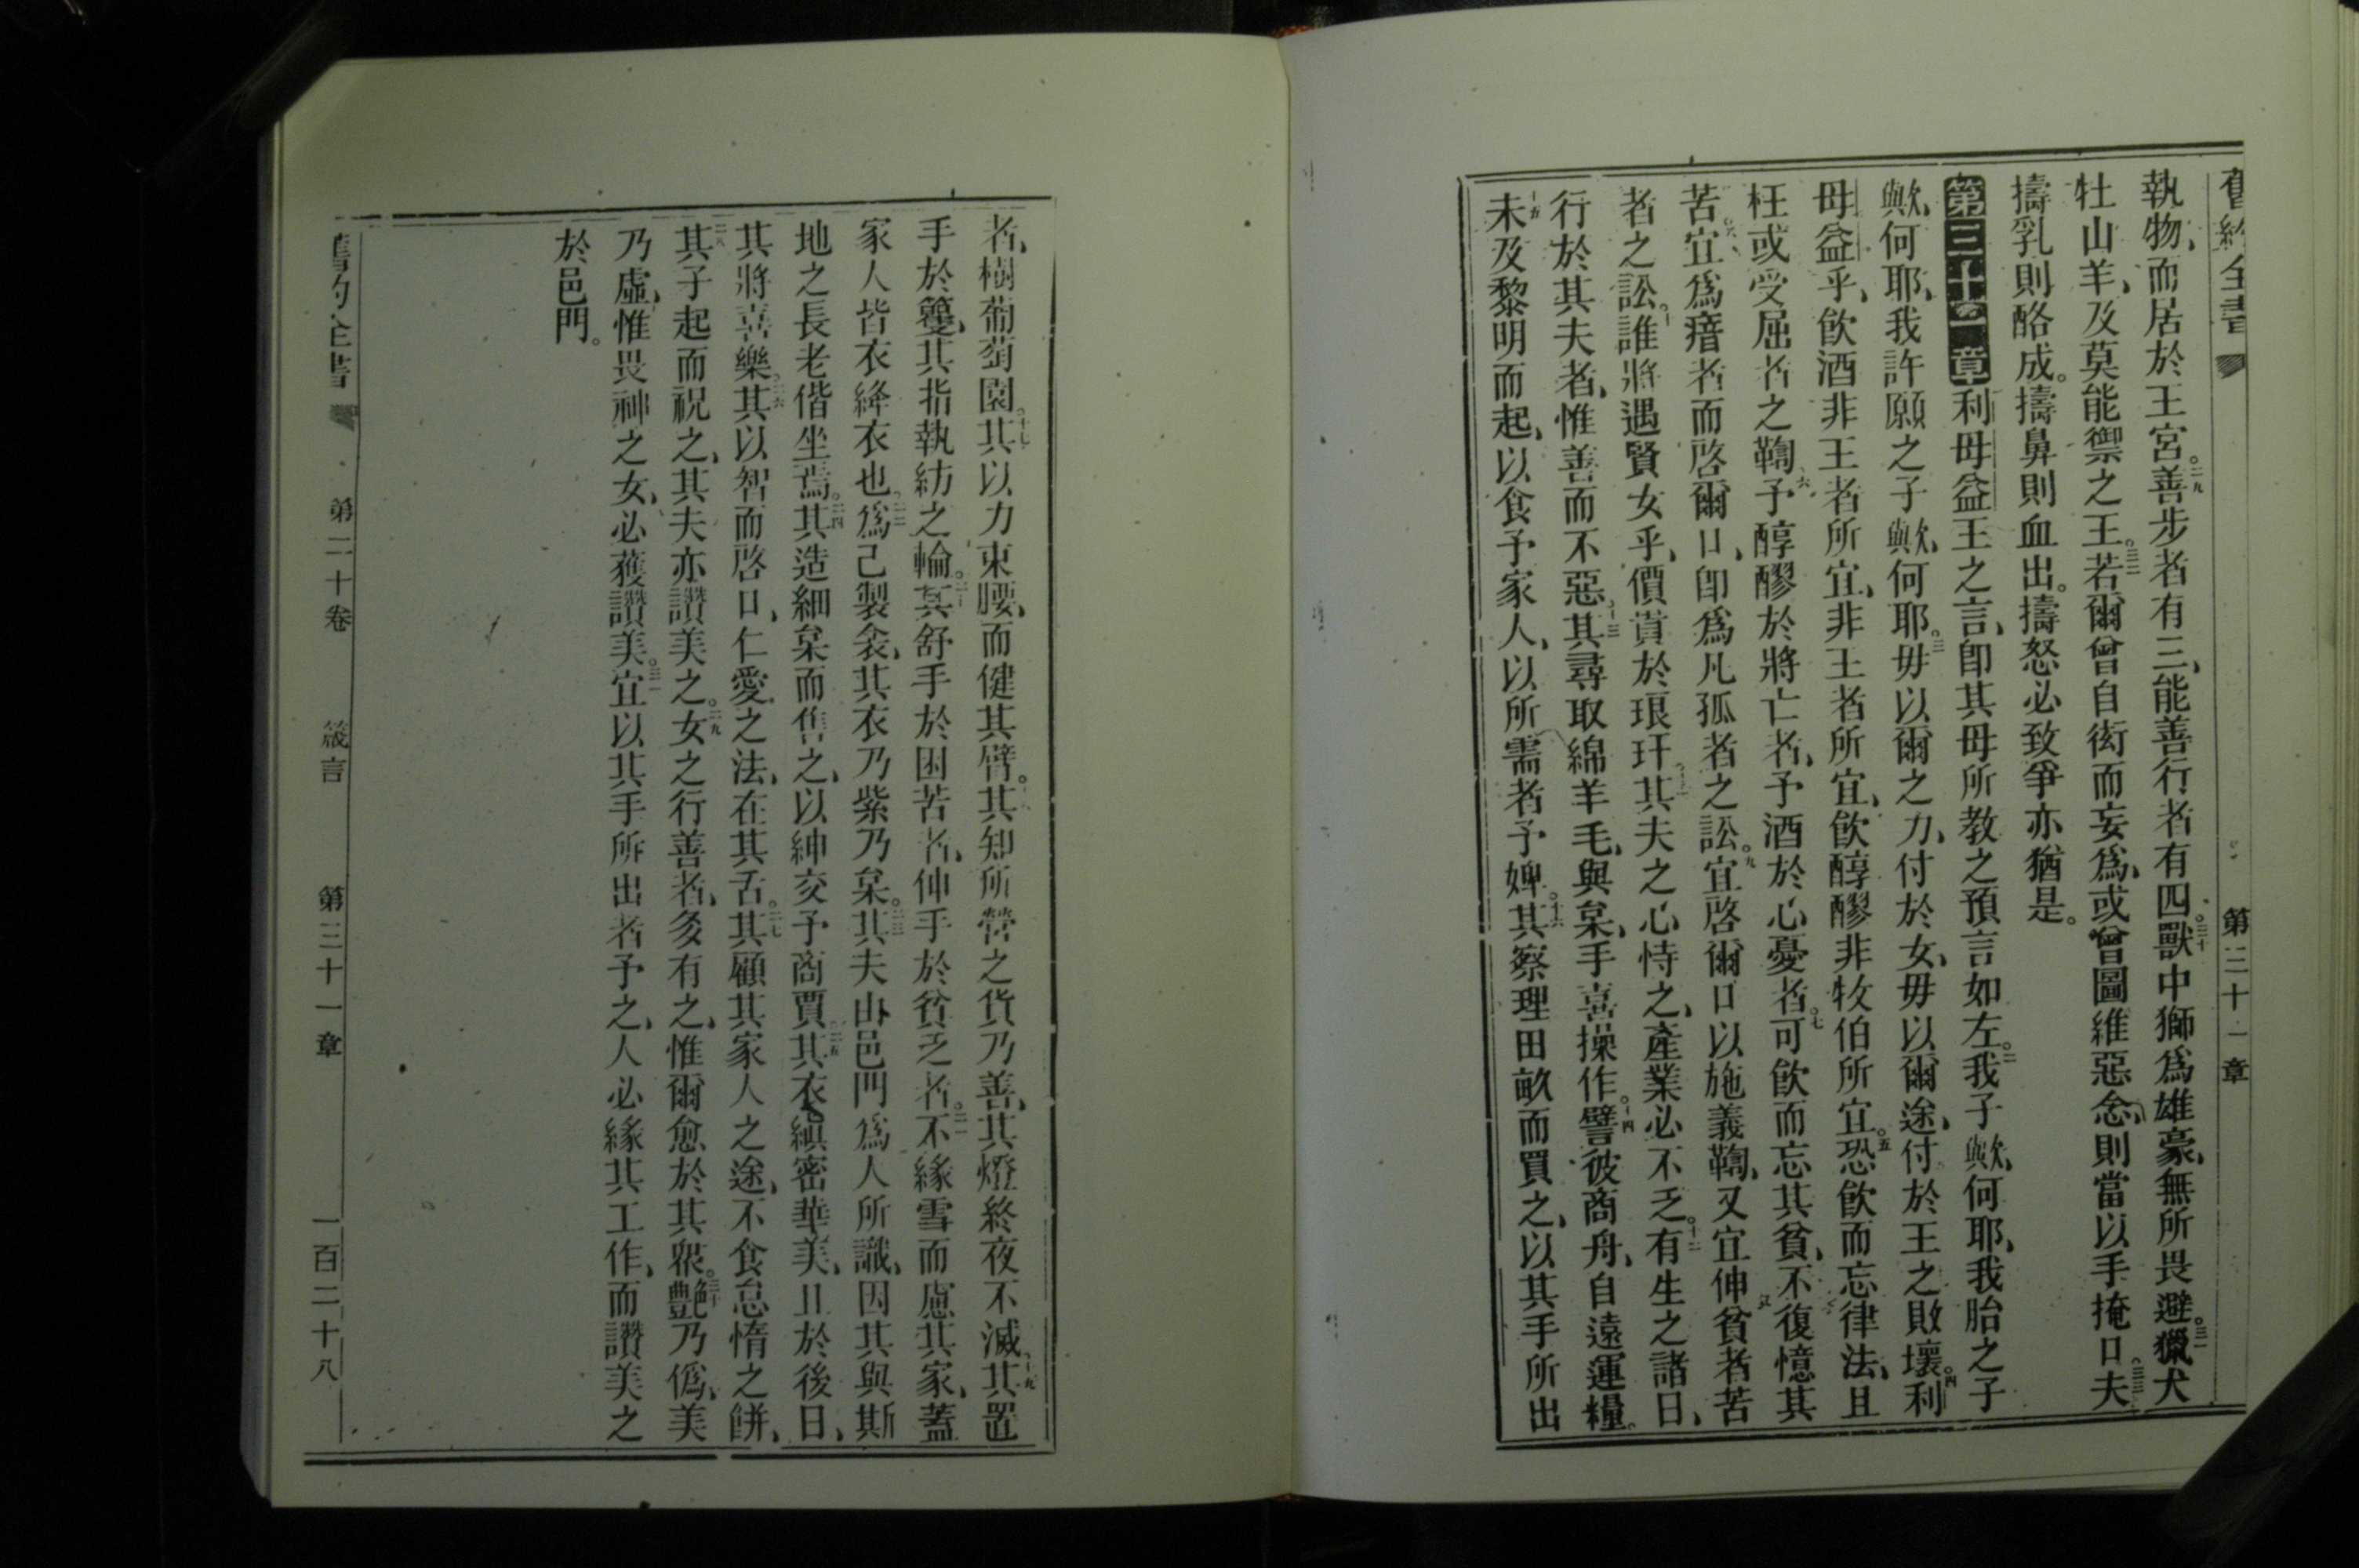 舊約全書 第三十一章
執物、而居於王宮。二九善步者有三、能善行者有四。三十獸中獅爲雄豪、無所畏避。三一獵犬
牡山羊、及莫能禦之王。三二若爾曾自衒而妄爲、或曾圖維惡念、則當以手掩口。三三夫
擣乳則酪成。擣鼻則血出。擣怒必致爭亦猶是。
第三十一章 利毋益王之言、卽其母所敎之預言如左。二我子歟、何耶、我胎之子
歟、何耶、我許願之子歟、何耶。三毋以爾之力、付於女、毋以爾途、付於王之敗壞。四利
毋益乎、飮酒非王者所宜、非王者所宜、飮醇醪非牧伯所宜。五恐飮而忘律法、且
枉或受屈者之鞫。六予醇醪於將亡者、予酒於心憂者。七可飮而忘其貧、不復憶其
苦。八宜爲瘖者而啓爾口、卽爲凡孤者之訟。九宜啓爾口以施義鞫、又宜伸貧者苦
者之訟。十誰將遇賢女乎、價貴於琅玕。十一其夫之心恃之、產業必不乏。十二有生之諸日、
行於其夫者、惟善而不惡。十三其尋取綿羊毛、與枲、手喜操作。十四譬彼商舟、自遠運糧。
十五未及黎明而起、以食予家人、以所需者予婢。十六其察理田畝而買之、以其手所出
者、樹葡萄園。十七其以力束腰、而健其臂。十八其知所營之貨乃善、其燈終夜不滅。十九其置
手於籰、其指執紡之輪。二十其舒手於困苦者、伸手於貧乏者。二一不緣雪而慮其家、蓋
家人皆衣絳衣也。二二爲己製衾、其衣乃紫乃枲。二三其夫由邑門爲人所識、因其與斯
地之長老偕坐焉。二四其造細枲而售之、以紳交予商賈。二五其衣縝密華美、且於後日、
其將喜樂。二六其以智而啓口、仁愛之法、在其舌。二七其顧其家人之途、不食怠惰之餅、
二八其子起而祝之、其夫亦讚美之。二九女之行善者、多有之、惟爾愈於其衆。三十艶乃僞、美
乃虛、惟畏神之女、必獲讚美。三一宜以其手所出者予之、人必緣其工作、而讚美之
於邑門。
舊約全書 第二十卷 箴言 第三十一章 一百二十八